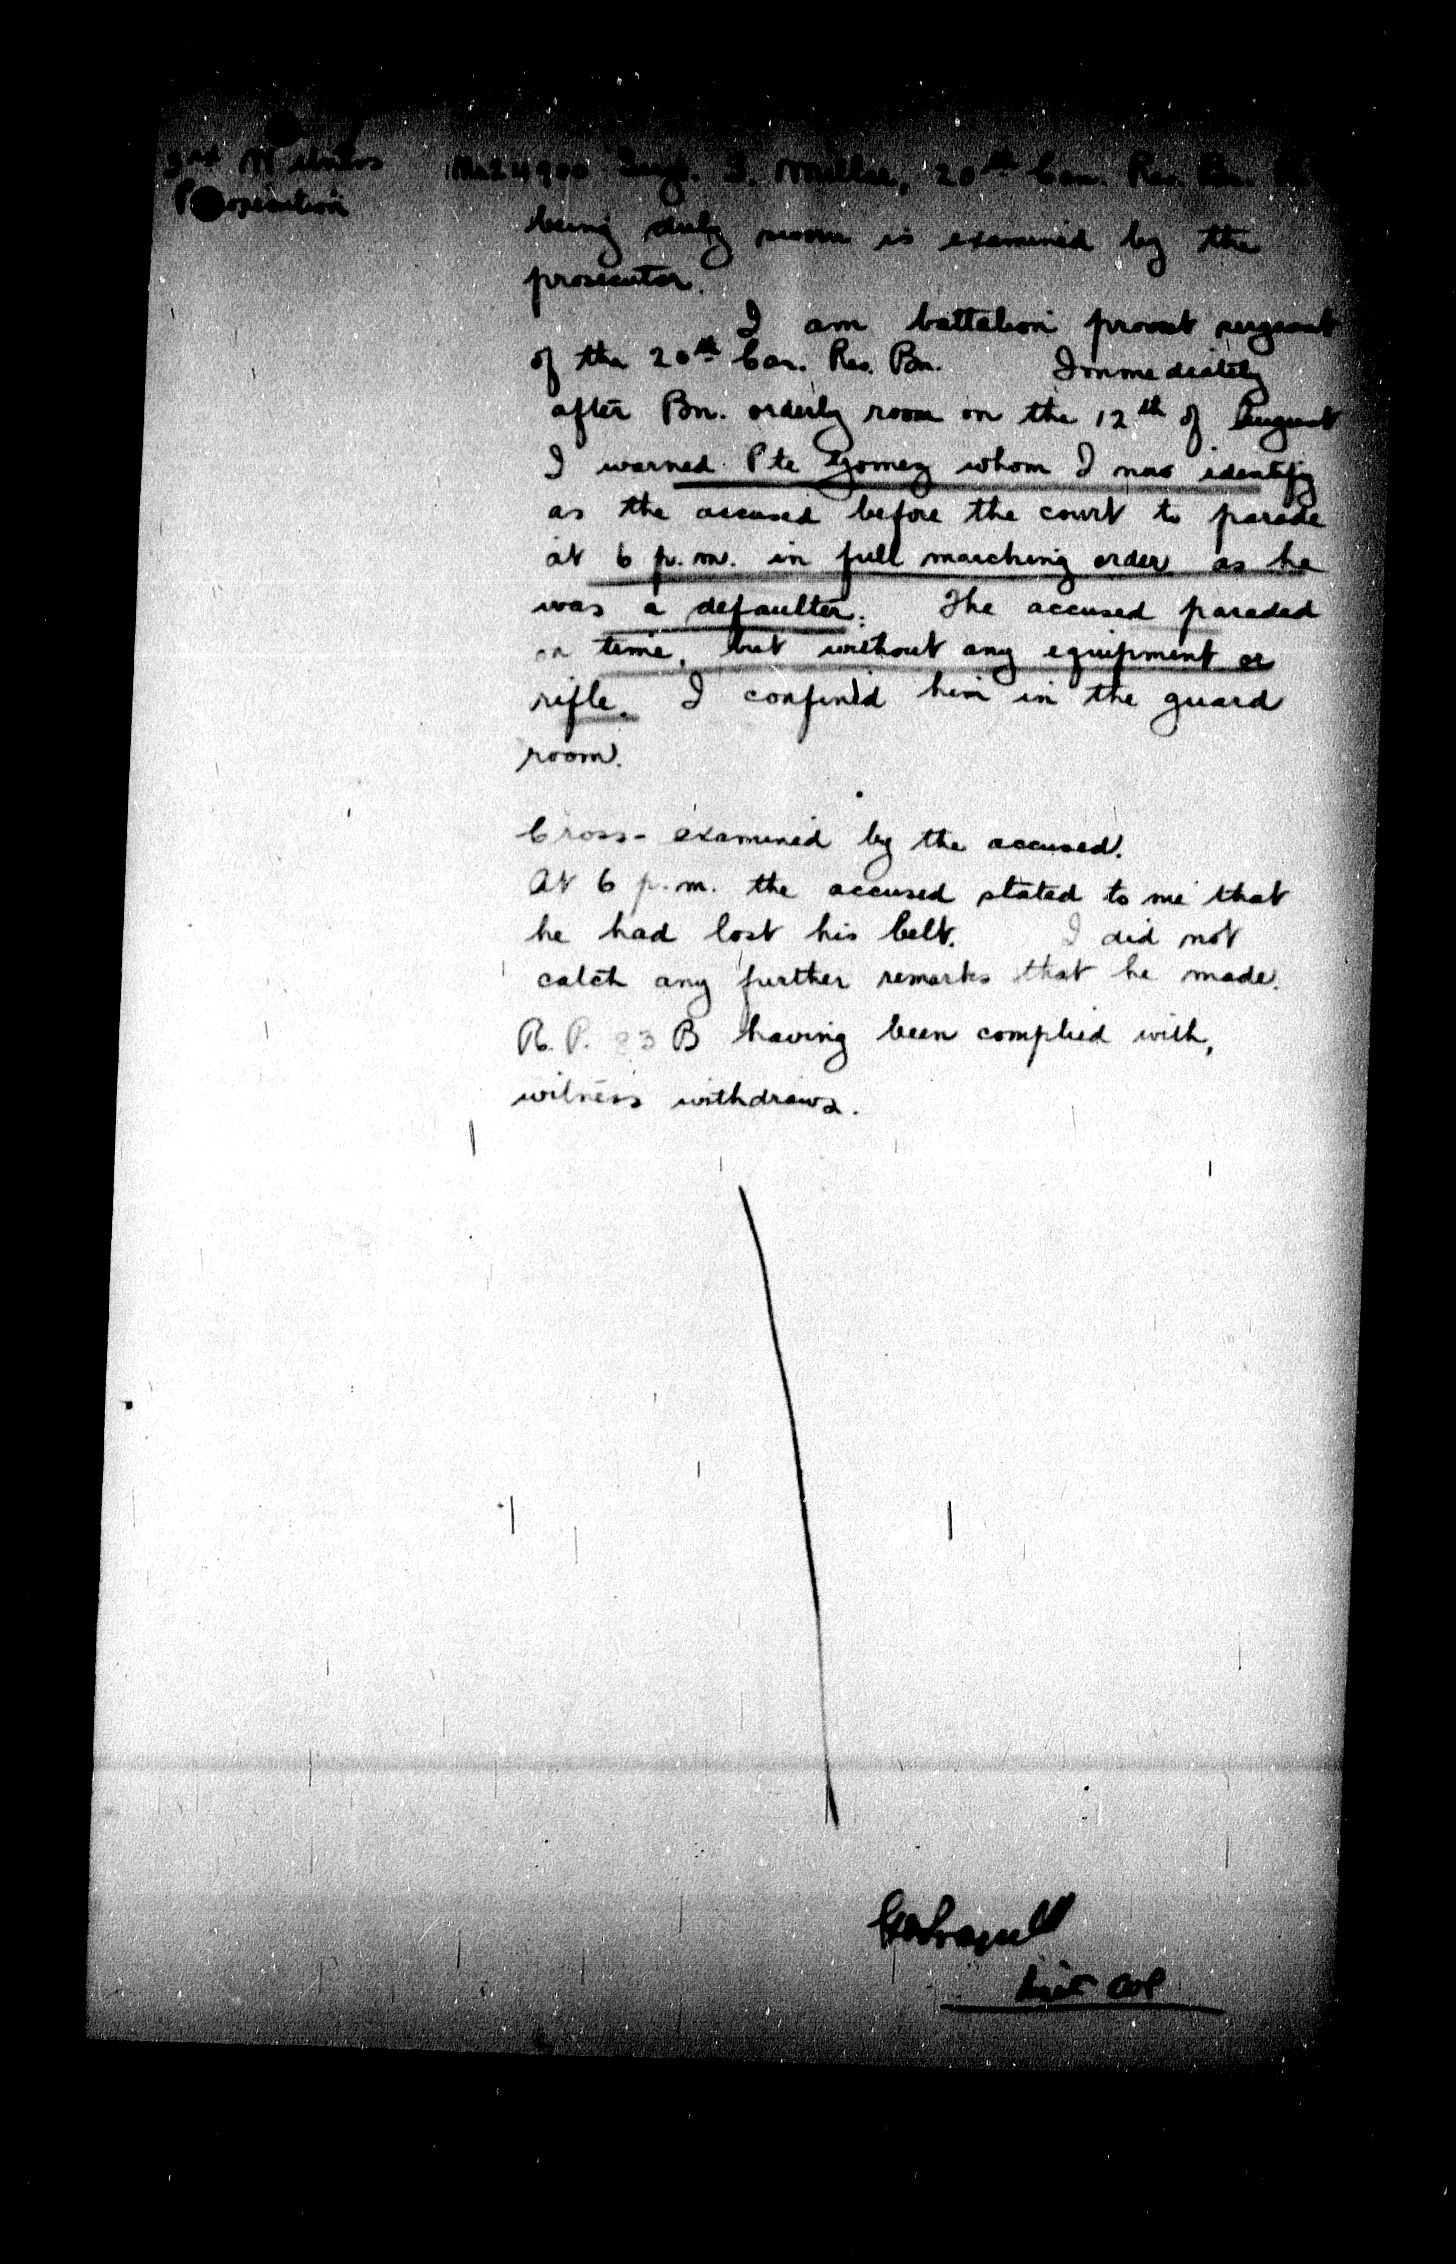 3rd Witness
Prosecution
No 24900 Sergt. J. Miller, 20th Can. Res. Bn.
being duly sworn is examined by the
prosecutor.
I am battalion provost sergeant
of the 20th Can. Res. Bn. Immediately
after Bn. orderly room on the 12th of August
I warned Pte Gomez whom I now identify
as the accused before the court to parade
at 6 p.m. in full marching order as he
was a defaulter. The accused paraded
on time, but without any equipment or
rifle. I confined him in the guard
room.
Cross-examined by the accused.
At 6 p.m. the accused stated to me that
he had lost his belt. I did not
catch any further remarks that he made.
R.P. 83 B having been complied with,
witness withdraws.
Lieut Col